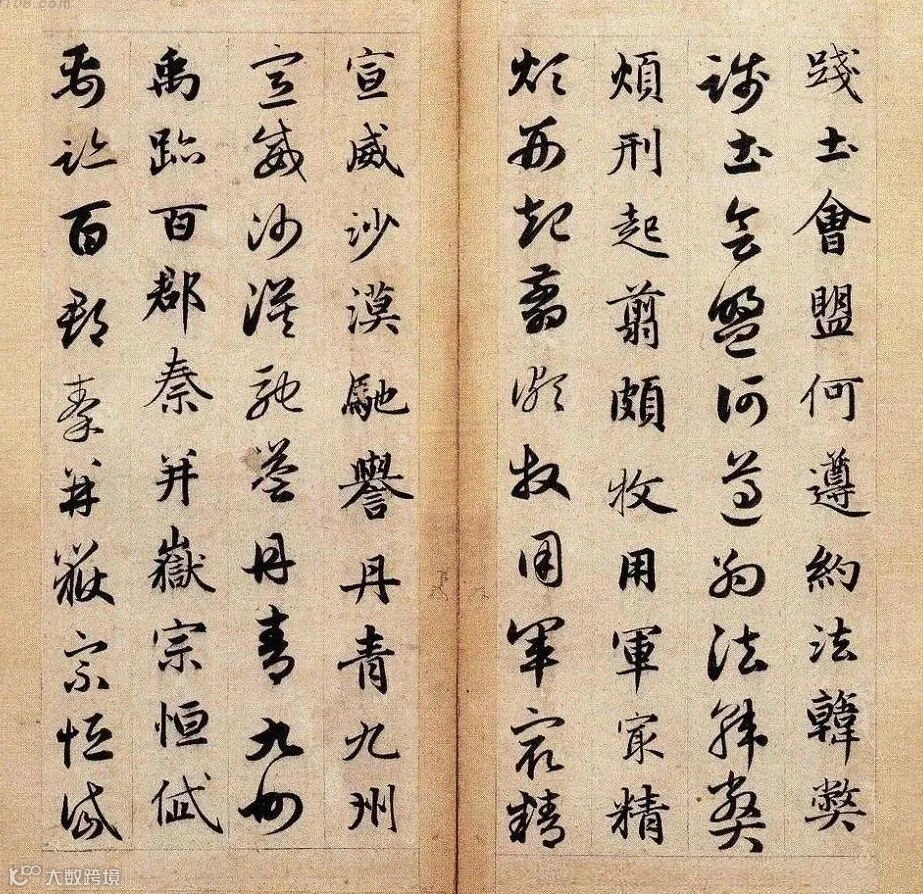 踐土會盟何遵約法韓弊
踐土會盟何遵約法韓弊
煩刑起翦頗牧用軍冣精
煩刑起翦頗牧用軍冣精
宣威沙漠馳譽丹青九州
宣威沙漠馳譽丹青九州
禹跡百郡秦并嶽宗恒岱
禹跡百郡秦并嶽宗恒岱
大数跨境